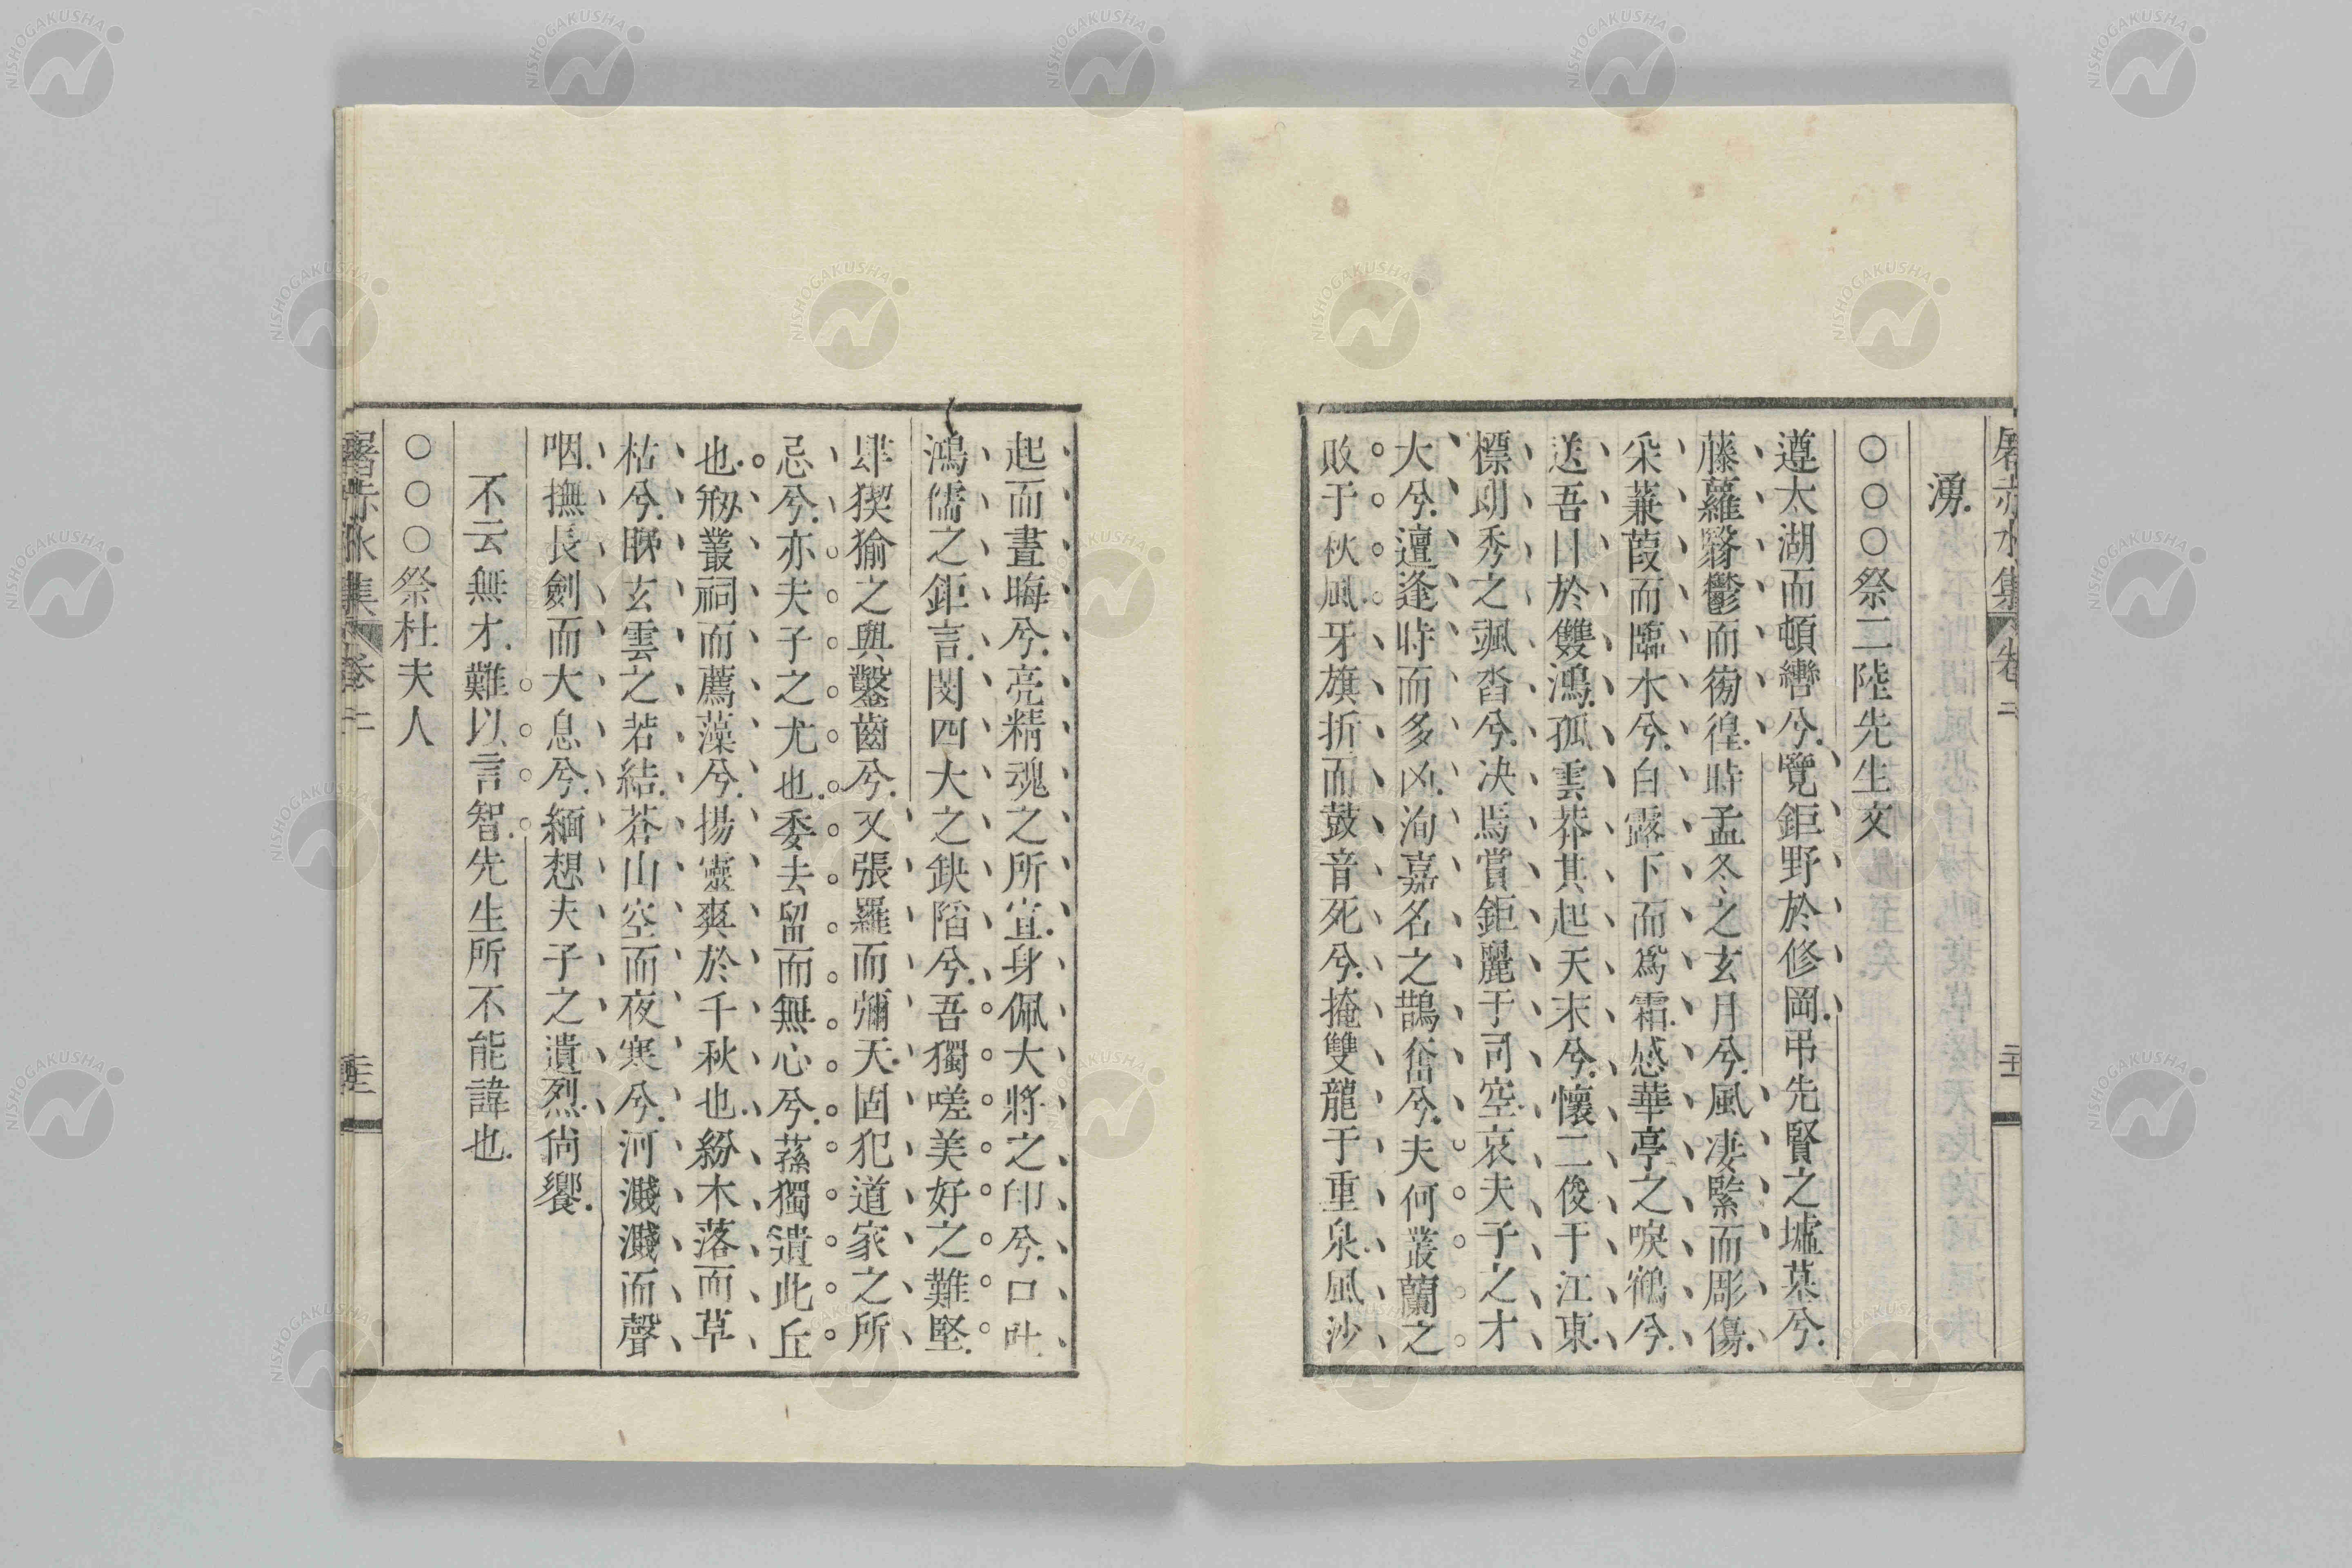 屠赤水集 卷二
湧
○○○祭二陸先生文
遵太湖而頓轡兮覽鉅野於修岡弔先賢之墟墓兮
藤蘿翳鬱而徬徨時孟冬之玄月兮風淒緊而彫傷
采蒹葭而臨水兮白露下而爲霜感華亭之唳鶴兮
送吾目於雙鴻孤雲莽其起天末兮懷二俊于江東
標朗秀之颯沓兮決焉賞鉅麗于司空哀夫子之才
大兮邅逢時而多凶洵嘉名之鵲奮兮夫何叢蘭之
敗于秋風牙旗折而鼓音死兮掩雙龍于重泉風沙
起而晝晦兮亮精魂之所宣身佩大將之印兮口吐
鴻儒之鉅言閔四大之缺陷兮吾獨嗟美好之難堅
肆猰㺄之與鑿齒兮又張羅而彌天固犯道家之所
忌兮亦夫子之尤也委去留而無心兮蓀獨遺此丘
也剏叢祠而薦藻兮揚靈爽於千秋也紛木落而草
枯兮睇玄雲之若結蒼山空而夜寒兮河濺濺而聲
咽撫長劍而大息兮緬想夫子之遺烈尚饗
不云無才難以言智先生所不能諱也
○○○祭杜夫人
屠赤水集 卷二
NISHOGAKUSHA